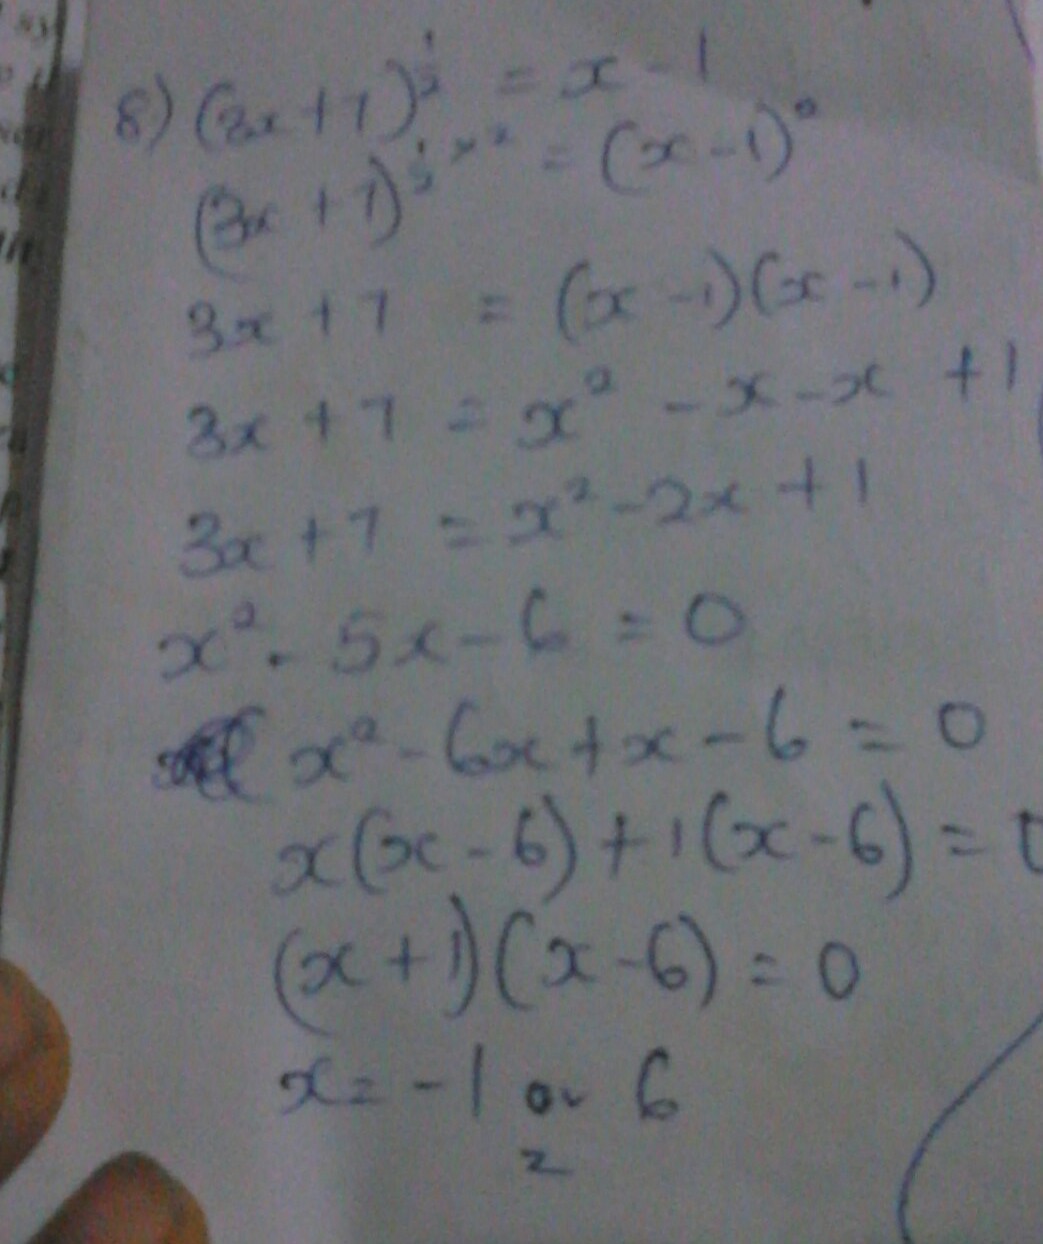 8) (3x+7)^½ = x - 1
(3x+7)^½×² = (x-1)²
3x+7 = (x-1)(x-1)
3x+7 = x² - x - x + 1
3x+7 = x² - 2x + 1
x² - 5x - 6 = 0
x² - 6x + x - 6 = 0
x(x-6) + 1(x-6) = 0
(x+1)(x-6) = 0
x = -1 or 6